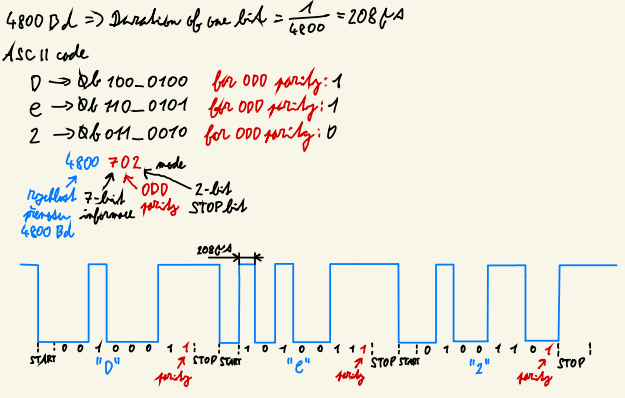 4800 Bd => Duration of one bit = 1/4800 = 208 μs
ASCII code
D → 0b 100_0100 for ODD parity: 1
e → 0b 110_0101 for ODD parity: 1
2 → 0b 011_0010 for ODD parity: 0
4800 702 mode
rychlost přenosu 4800 Bd
7-bit informace
ODD parity
2-bit STOP bit
208 μs
START 0 0 1 0 0 0 1 1 STOP START 1 0 1 0 0 1 1 1 STOP START 0 1 0 0 1 1 0 1 STOP
"D" "e" "2"
parity parity parity